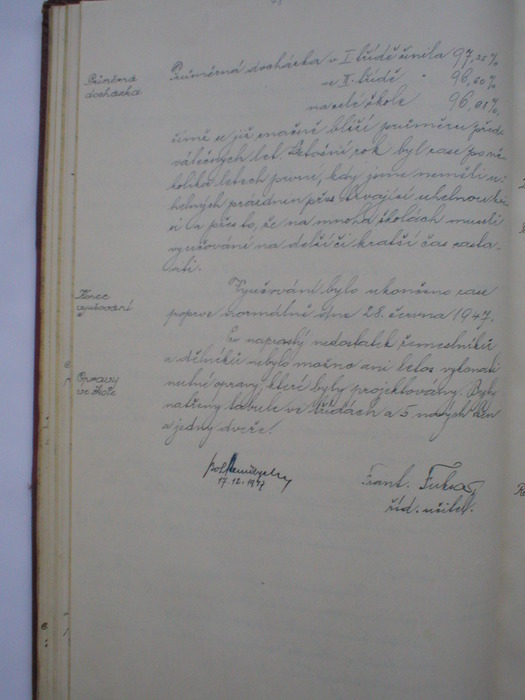 Průměrná
docházka
Průměrná docházka v I. třídě činila 97,25%
ve II. třídě " 96,60%
na celé škole 96,98%,
čímž se již značně blíží průměru před-
válečných let. Letošní rok byl zase po ně-
kolika letech první, kdy jsme neměli u-
helných prázdnin přes trvající uhelnou kri-
si a přes to, že na mnoha školách museli
vyučování na delší či kratší čas zasta-
viti.
Konec
vyučování
Vyučování bylo ukončeno zase
poprve normálně dne 28. června 1947.
Opravy
ve škole
Pro naprostý nedostatek řemeslníků
a dělníků nebylo možno ani letos vykonati
nutné opravy, které byly projektovány. Byly
natřeny tabule ve třídách a 5 nových
a jedny dveře.
17.12.1947
Frant. Fuksa,
říd. učitel.